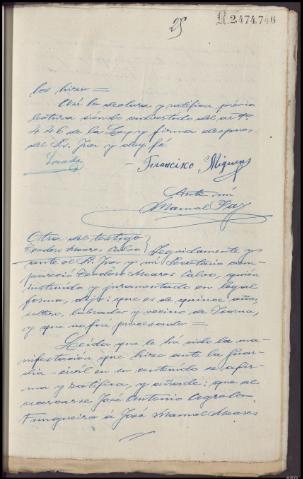 25
2.474.746
los hizo =
Así lo declara y ratifica previa
lectura siendo enterado del arto
446 de la Ley y firma despues
del Sr. Juez y doy fé
Francisco Miguez
Ante mi
Manuel Paz
Otra del testigo
Teodoro Alvarez Calvo } Seguidamente y
ante el Sr. Juez y mi Secretario com-
pareció Teodoro Alvarez Calvo, quién
instruido y juramentado en legal
forma, dijo: que es de quince años,
soltero, labrador y vecino de
y que no fué procesado =
Leida que le ha sido la ma-
nifestación que hizo ante la Guar-
dia civil en su contenido se afir-
ma y ratifica, y añade: que al
José Antonio
Fungueiro á José Manuel Alvarez